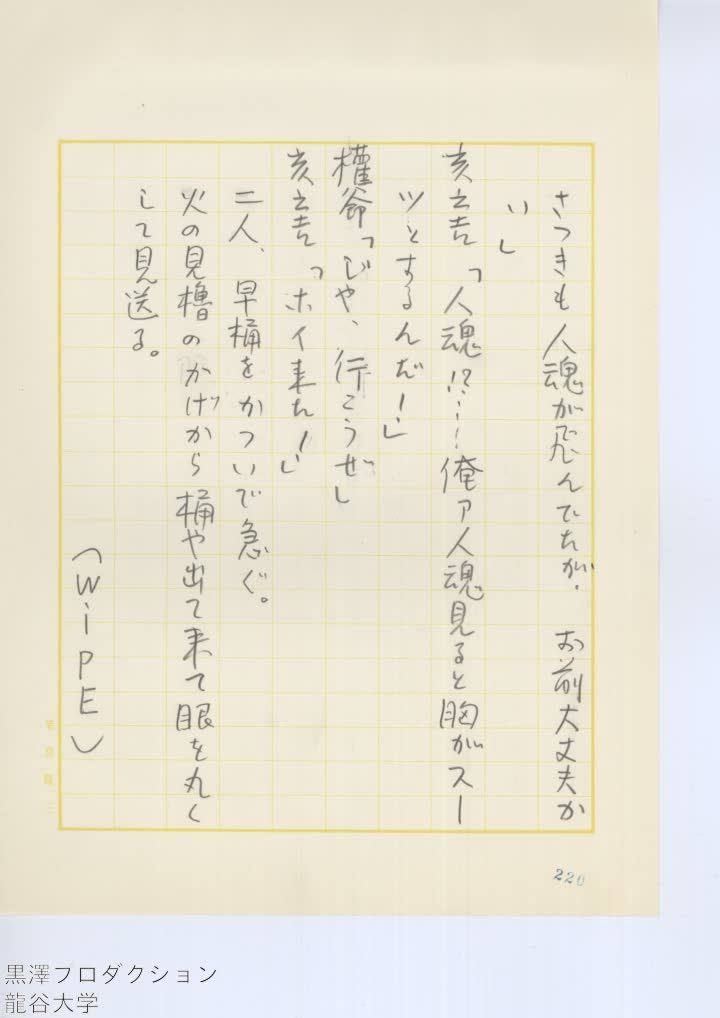 さつきも人魂が飛んでたが、お前大丈夫か
い」
亥之吉「人魂!?…！俺ァ人魂見ると胸がスー
ツとするんだ！」
権爺「じや、行こうぜ」
亥之吉「ホイ来た！」
二人、早桶をかついで急ぐ。
火の見櫓のかげから桶や出て来て眼を丸く
して見送る。
（WiPE）
220
黒澤プロダクション
龍谷大学